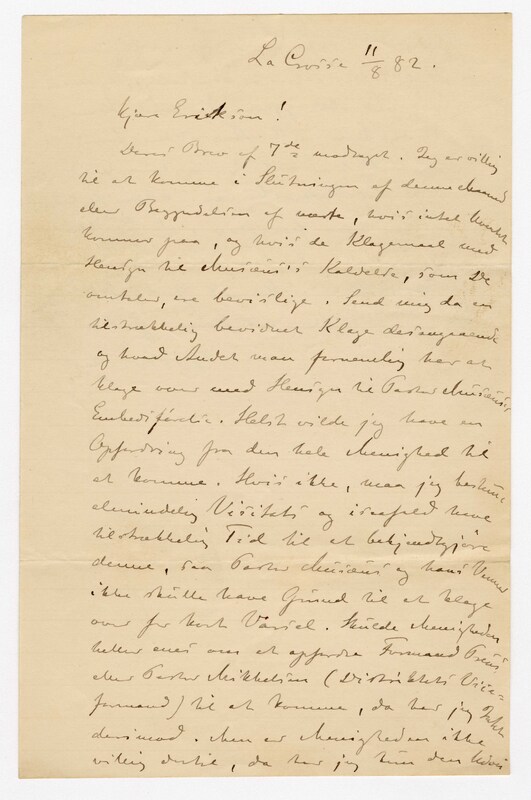 La Crosse 11/8 82.
Kjære Erickson!
Deres Brev af 7de modtaget. Jeg er villig
til at komme i Slutningen af denne Maaned
eller Begyndelsen af næste, hvis intet
kommer paa, og hvis de Klagemaal med
Hensyn til Musæus's som De
omtaler, ere bevislige. Send mig da en
tilstrækkelig bevidnet Klage desangaaende
og hvad Andet man fornemlig har at
klage over med Hensyn til Pastor Musæus's
Embedsførelse. Helst vilde jeg have en
Opfordring fra den hele Menighed til
at komme. Hvis ikke, maa jeg
almindelig Visitats og isaafald have
tilstrækkelig Tid til at bekjendtgjøre
denne, saa Pastor Musæus og hans Venner
ikke skulle have Grund til at klage
over for kort Varsel. Skulde Menigheden
heller enes om at opfordre Formand Preus
eller Pastor Mikkelsen (Distriktets Vice-
formand) til at komme, da har jeg Intet
derimod. Men er Menigheden ikke
villig dertil, da har jeg kun den